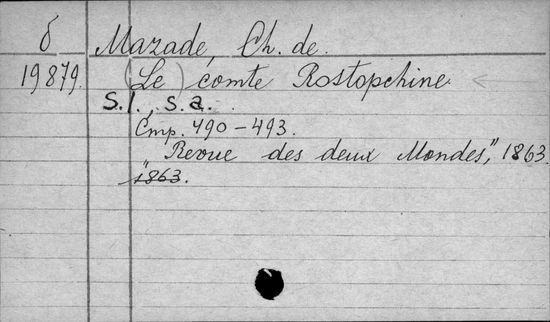 б Mazade, Ch. de.
19879. (Le) comte Rostopchine <
s.l., s.a.
Стр. 490-493.
"Revue des deux Mondes," 1863
1863.